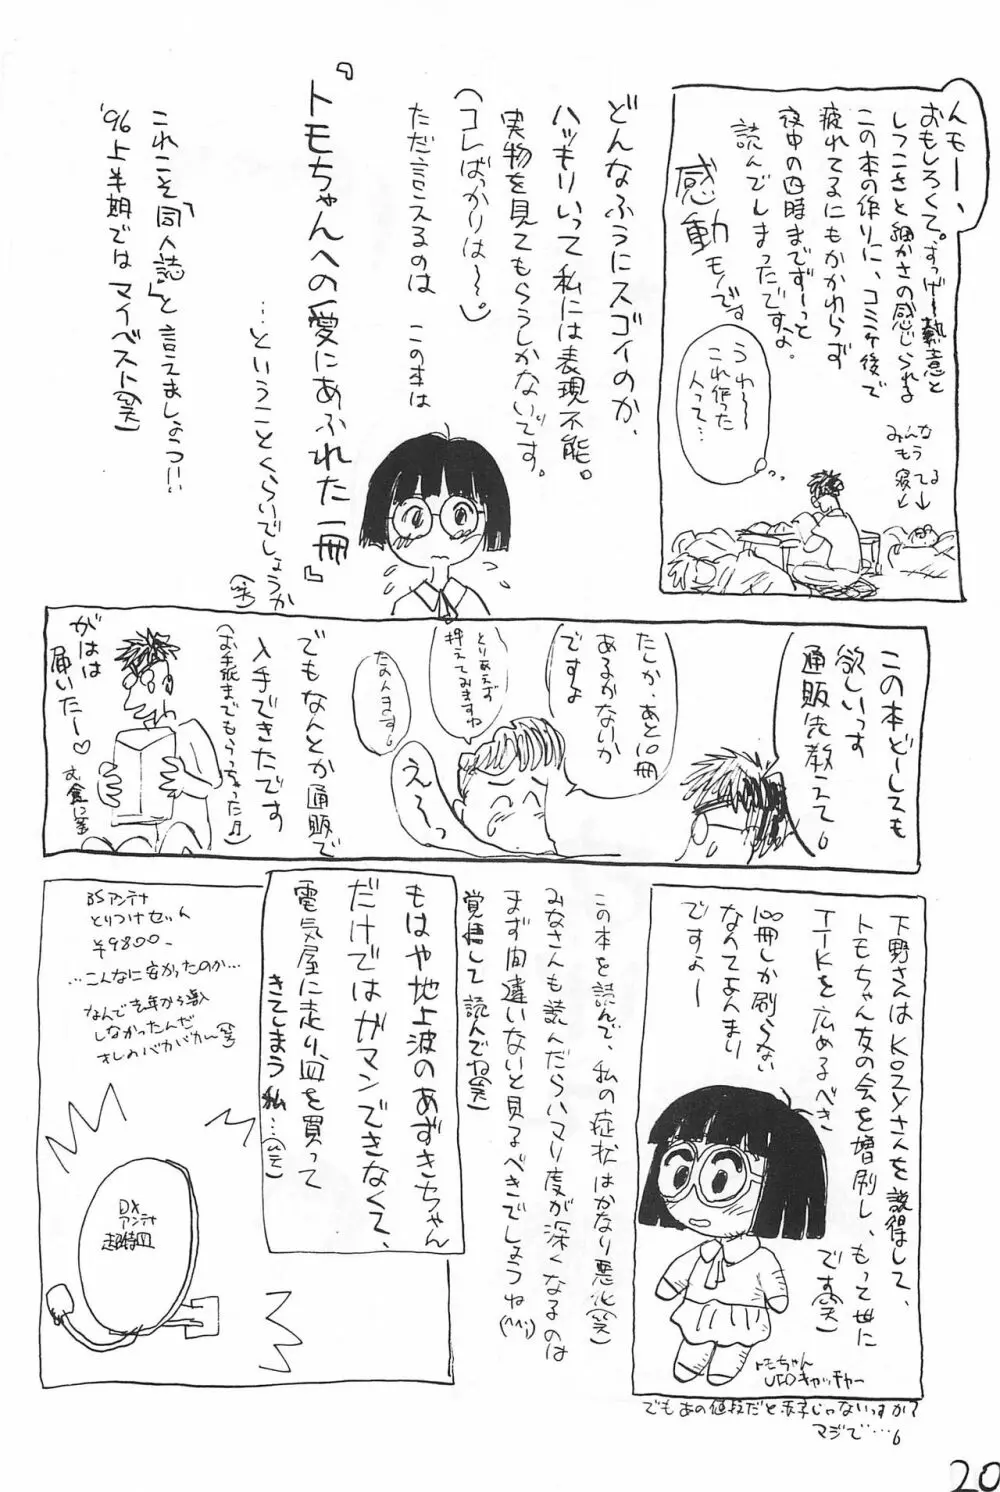 んモー、
おもしろくて。すっげー熱意と
しつこさと細かさの感じられる
この本の作りに、コミケ後で
疲れてるにもかかわらず
夜中の四時までずーっと
読んでしまったですよ。
感動モノです
うわ〜〜
これ作った
人って…
みんな
もう
寝てる
どんなふうにスゴイのか、
ハッキリいって私には表現不能。
実物を見てもらうしかないです。
(コレばっかりは〜〜。)
ただ言えるのは この本は
『トモちゃんへの愛にあふれた一冊』
…ということくらいでしょうか
(笑)
これこそ「同人誌」と言えましょうっ!!
'96上半期ではマイベスト(笑)
この本どーしても
欲しいっす
通販先教えて。
たしか、あと10冊
あるかないか
ですよ
とりあえず
押えてみますね
たのんます。
え〜っ
でもなんとか通販で
入手できたです
(お手紙までもらっちゃった♬)
がはは
届いたー♡
下野さんはKOZYさんを説得して、
トモちゃん友の会を増刷し、もって世に
TTKを広めるべき
です(笑)
100冊しか刷らない
なんてあんまり
ですよー
トモちゃん
UFOキャッチャー
でもあの値段だと赤字じゃないっすか?
マジで…。
この本を読んで、私の症状はかなり悪化(笑)
みなさんも読んだらハマり度が深くなるのは
まず間違いないと見るべきでしょうね(^^;)
覚悟して読んでね(笑)
もはや地上波のあずきちゃん
だけではガマンできなくて、
電気屋に走り、皿を買って
きてしまう私…(笑)
BSアンテナ
とりつけセット
¥9800-
…こんなに安かったのか…
なんで去年から導入
しなかったんだ
オレのバカバカ〜(笑)
DX
アンテナ
超特皿
20